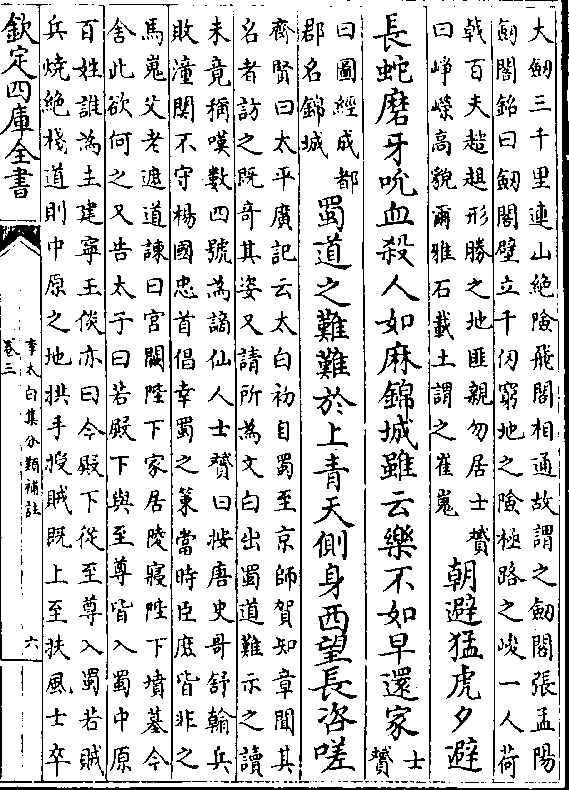 大劒三千里連山絶險飛閣相通故謂之劒閣張孟陽
劒閣銘曰劒閣壁立千仞窮地之險極路之峻一人荷
㦸百夫趦趄形勝之地匪親勿居士贇
曰崢嶸高貌爾雅石載土謂之崔嵬
朝避猛虎夕避
長蛇磨牙吮血殺人如麻錦城雖云樂不如早還家
士贇
曰圖經成都
郡名錦城
蜀道之難難於上青天側身西望長咨嗟
齊賢曰太平廣記云太白初自蜀至京師賀知章聞其
名者訪之既竒其姿又請所為文白出蜀道難示之讀
未竟稱嘆數四號為謫仙人士贇曰按唐史哥舒翰兵
敗潼關不守楊國忠首倡幸蜀之策當時臣庶皆非之
馬嵬父老遮道諫曰宫闕陛下家居陵寢陛下墳墓今
舍此欲何之又告太子曰若殿下與至尊皆入蜀中原
百姓誰為主建寧王倓亦曰今殿下從至尊入蜀若賊
兵燒絶棧道則中原之地拱手授賊既上至扶風士卒
欽定四庫全書
李太白集分類補註
卷三
六